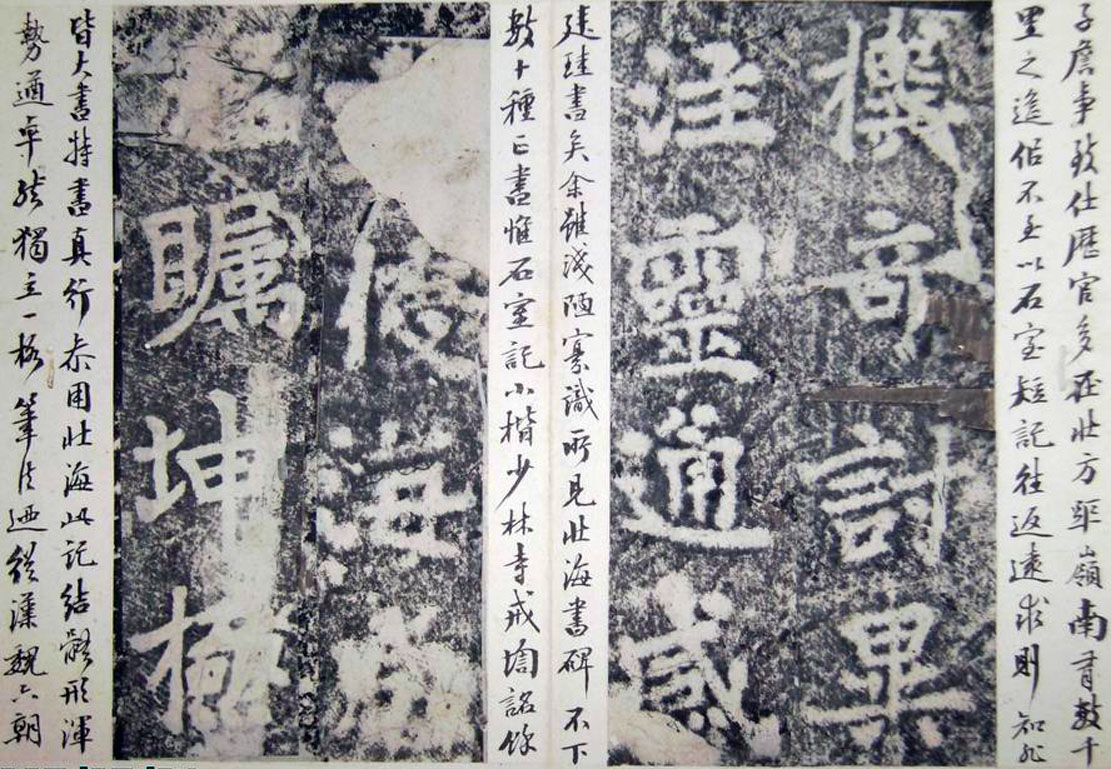 子詹事致仕歷官多在北方距嶺南有數千
里之遙但不至以石室短記往返遠求則知非
奇討異
靈通感
建珪書矣余雖淺陋寡識所見北海書碑不下
數十種正書惟石室記小楷少林寺戒壇銘餘
海
矚坤極
皆大書特書真行用北海此記結體形渾
勢遒卓然獨立一格筆法迺從漢魏六朝